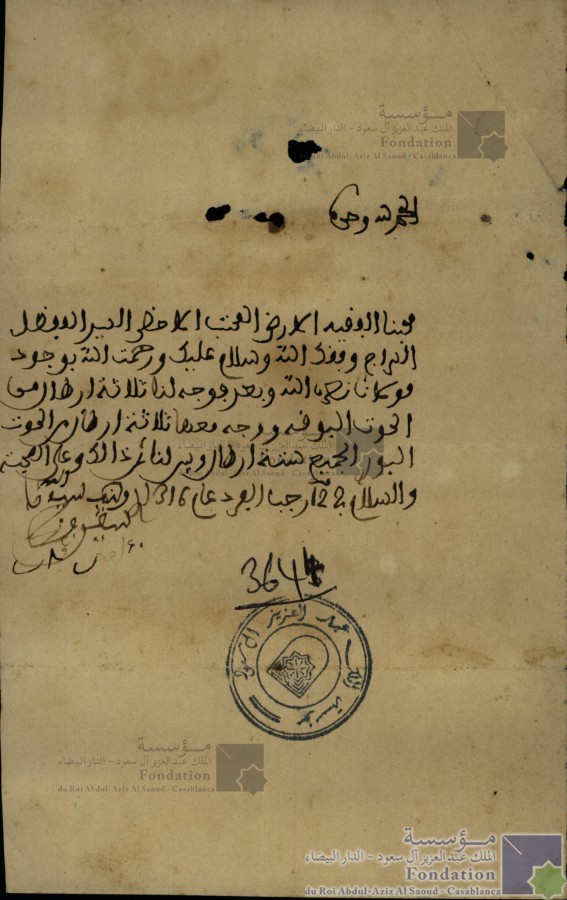 مؤسسة
الملك عبد العزيز آل سعود - الدار البيضاء
Fondation
du Roi Abdul-Aziz Al Saoud - Casablanca
الحمد لله وحده
محبنا الفقيه الارضى المحب الاحظى السيد الفضل
السراج وفقك الله وسلام عليك ورحمت الله بوجود
مولانا نصره الله وبعد فوجه لنا ثلاثة ارطال من
الحوت البوقه ووجه معها ثلاثة ارطال من الحوت
البور الجميع ستة ارطال وبين لنا ثمن ذالك وعلى المحبة
والسلام 22 رجب الفرد عام 1316
3644
مؤسسة الملك عبد العزيز آل سعود
مؤسسة
الملك عبد العزيز آل سعود - الدار البيضاء
Fondation
du Roi Abdul-Aziz Al Saoud - Casablanca
مؤسسة
الملك عبد العزيز آل سعود - الدار البيضاء
Fondation
du Roi Abdul-Aziz Al Saoud - Casablanca